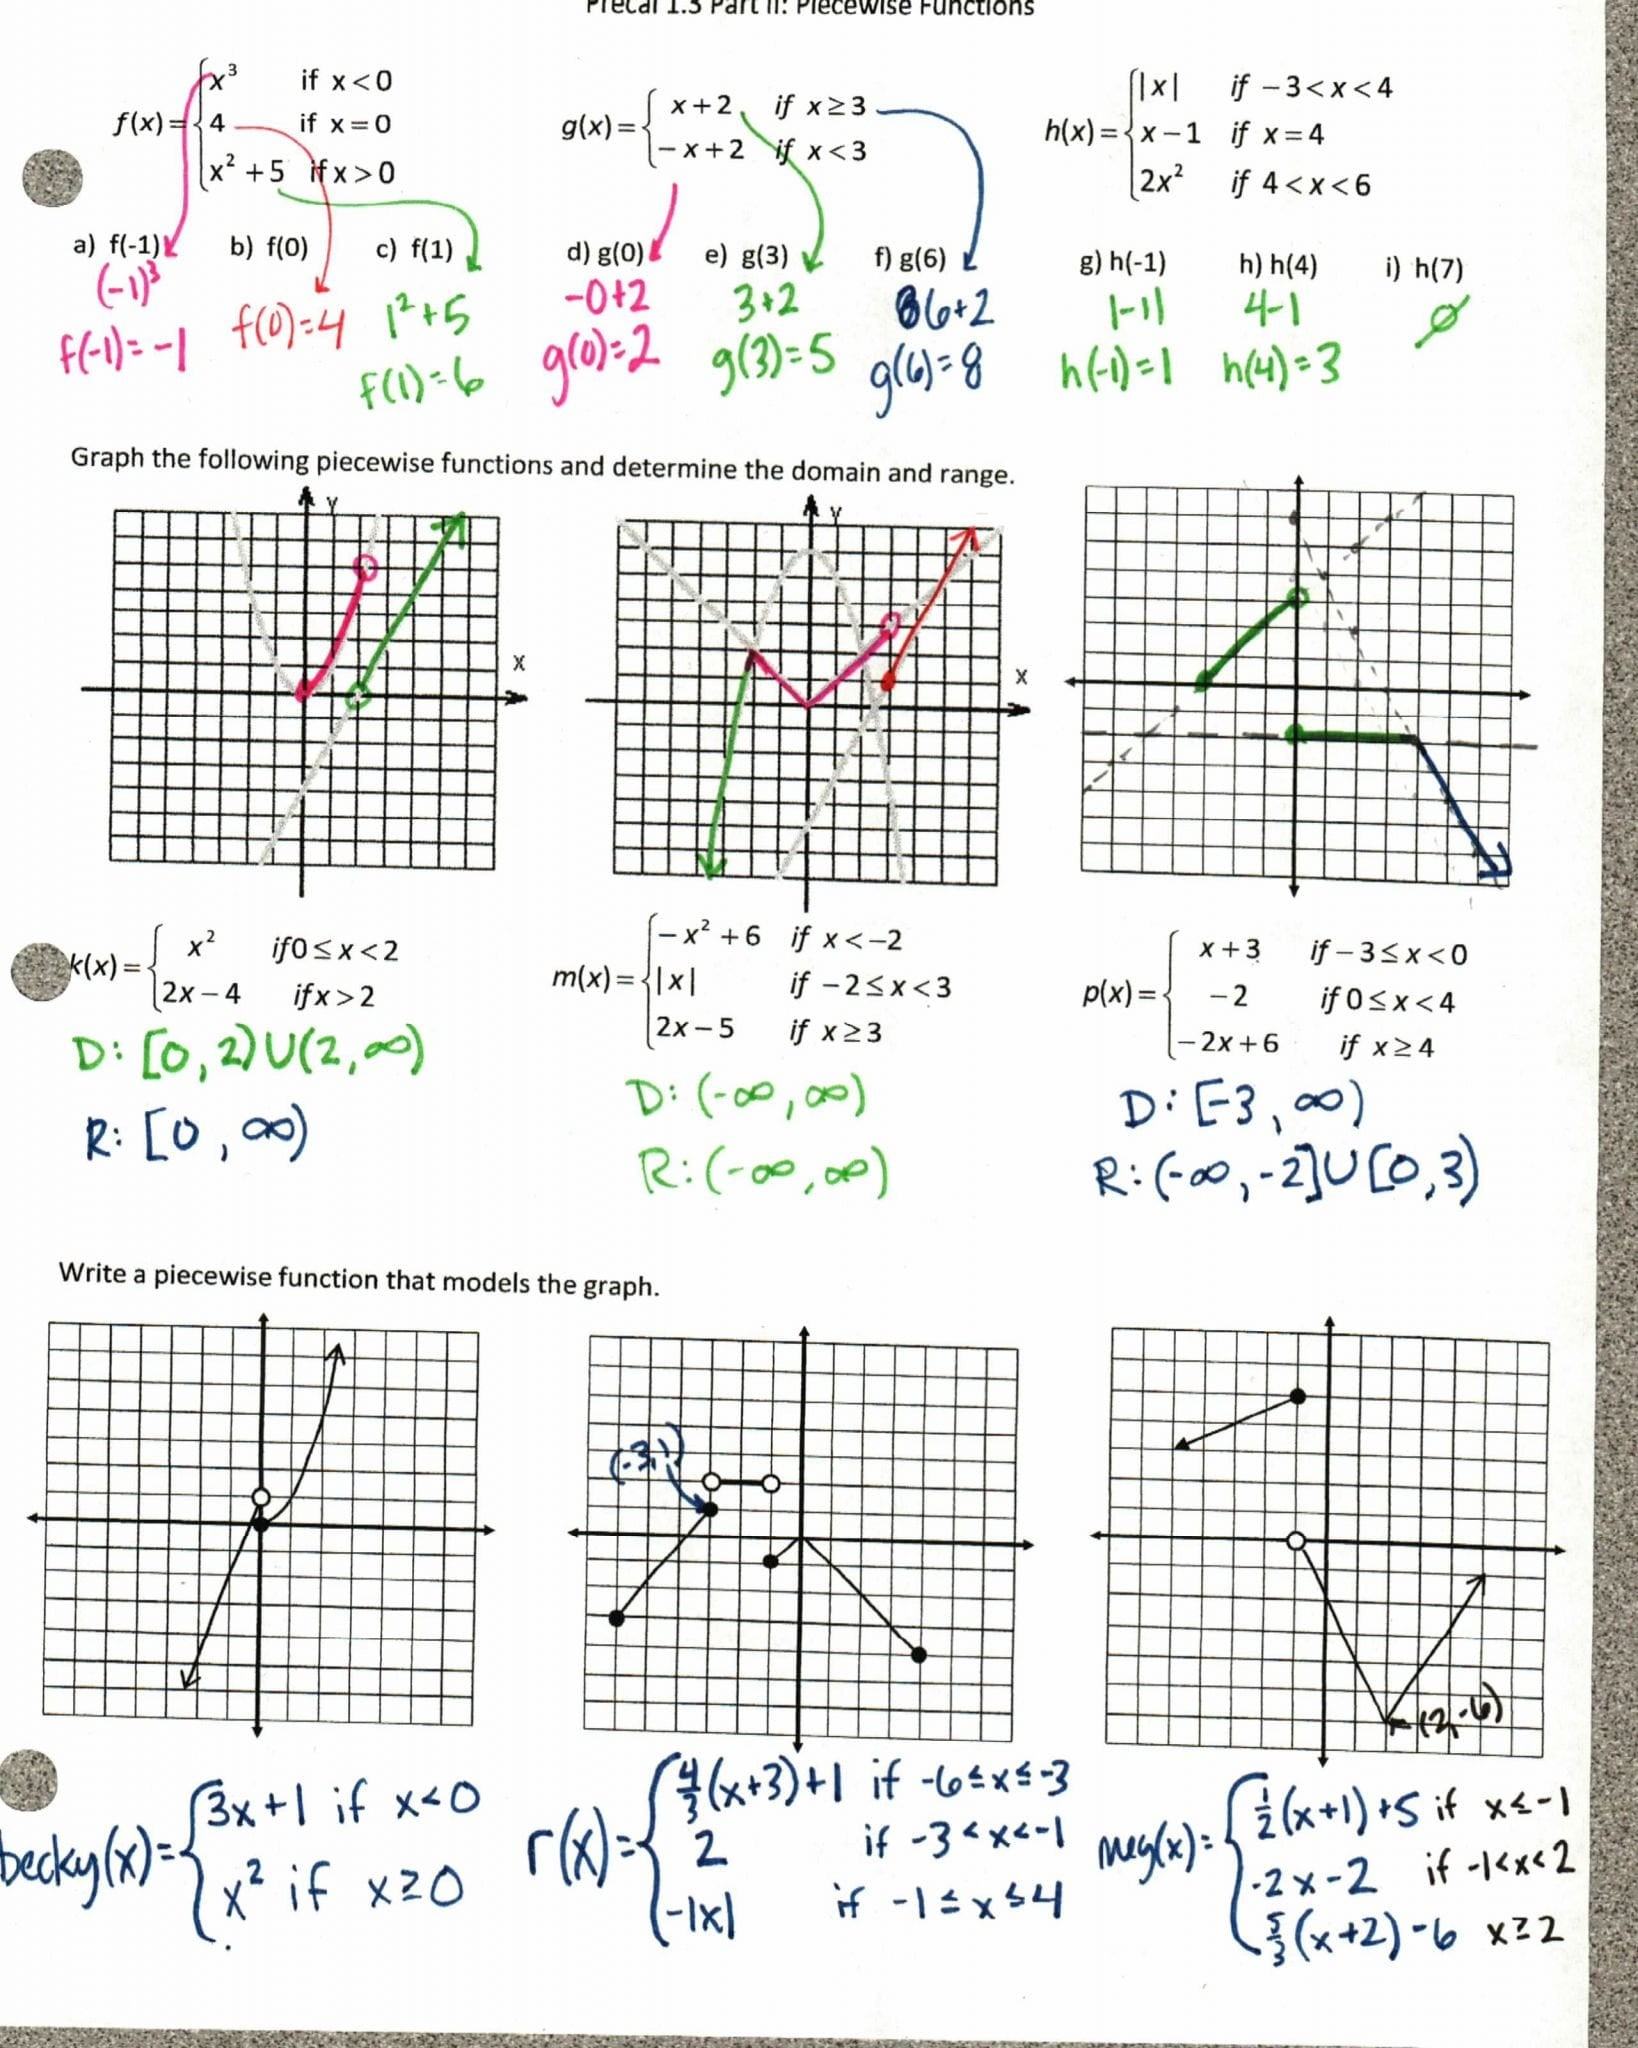 Precal 1.3 Part II: Piecewise Functions
f(x) = { x³ if x < 0
4 if x = 0
x² + 5 if x > 0
g(x) = { x + 2 if x ≥ 3
-x + 2 if x < 3
h(x) = { |x| if -3 < x < 4
x - 1 if x = 4
2x² if 4 < x < 6
a) f(-1) b) f(0) c) f(1) d) g(0) e) g(3) f) g(6) g) h(-1) h) h(4) i) h(7)
(-1)³
f(-1) = -1
f(0) = 4
1² + 5
f(1) = 6
-0+2
g(0) = 2
3+2
g(3) = 5
6+2
g(6) = 8
|-1|
h(-1) = 1
4-1
h(4) = 3
∅
Graph the following piecewise functions and determine the domain and range.
Y
X
Y
X
k(x) = { x² if 0 ≤ x < 2
2x - 4 if x > 2
D: [0, 2) U (2, ∞)
R: [0, ∞)
m(x) = { -x² + 6 if x < -2
|x| if -2 ≤ x < 3
2x - 5 if x ≥ 3
D: (-∞, ∞)
R: (-∞, ∞)
p(x) = { x + 3 if -3 ≤ x < 0
-2 if 0 ≤ x < 4
-2x + 6 if x ≥ 4
D: [-3, ∞)
R: (-∞, -2] U [0, 3)
Write a piecewise function that models the graph.
(-3,1)
(2,-6)
becky(x) = { 3x+1 if x<0
x² if x≥0
r(x) = { 4/3(x+3)+1 if -6≤x≤-3
2 if -3<x<-1
-|x| if -1≤x≤4
meg(x) = { 1/2(x+1)+5 if x≤-1
-2x-2 if -1<x<2
5/3(x+2)-6 x≥2